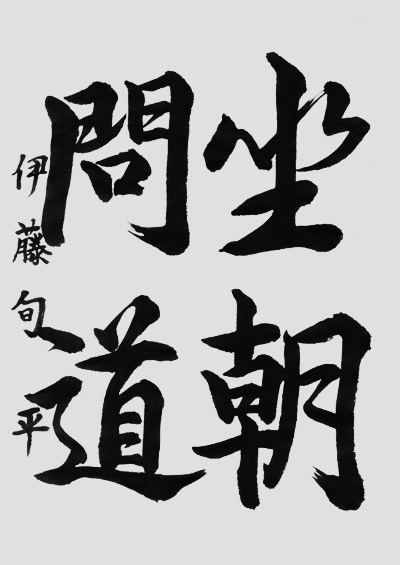 坐朝
問道
伊藤旬平